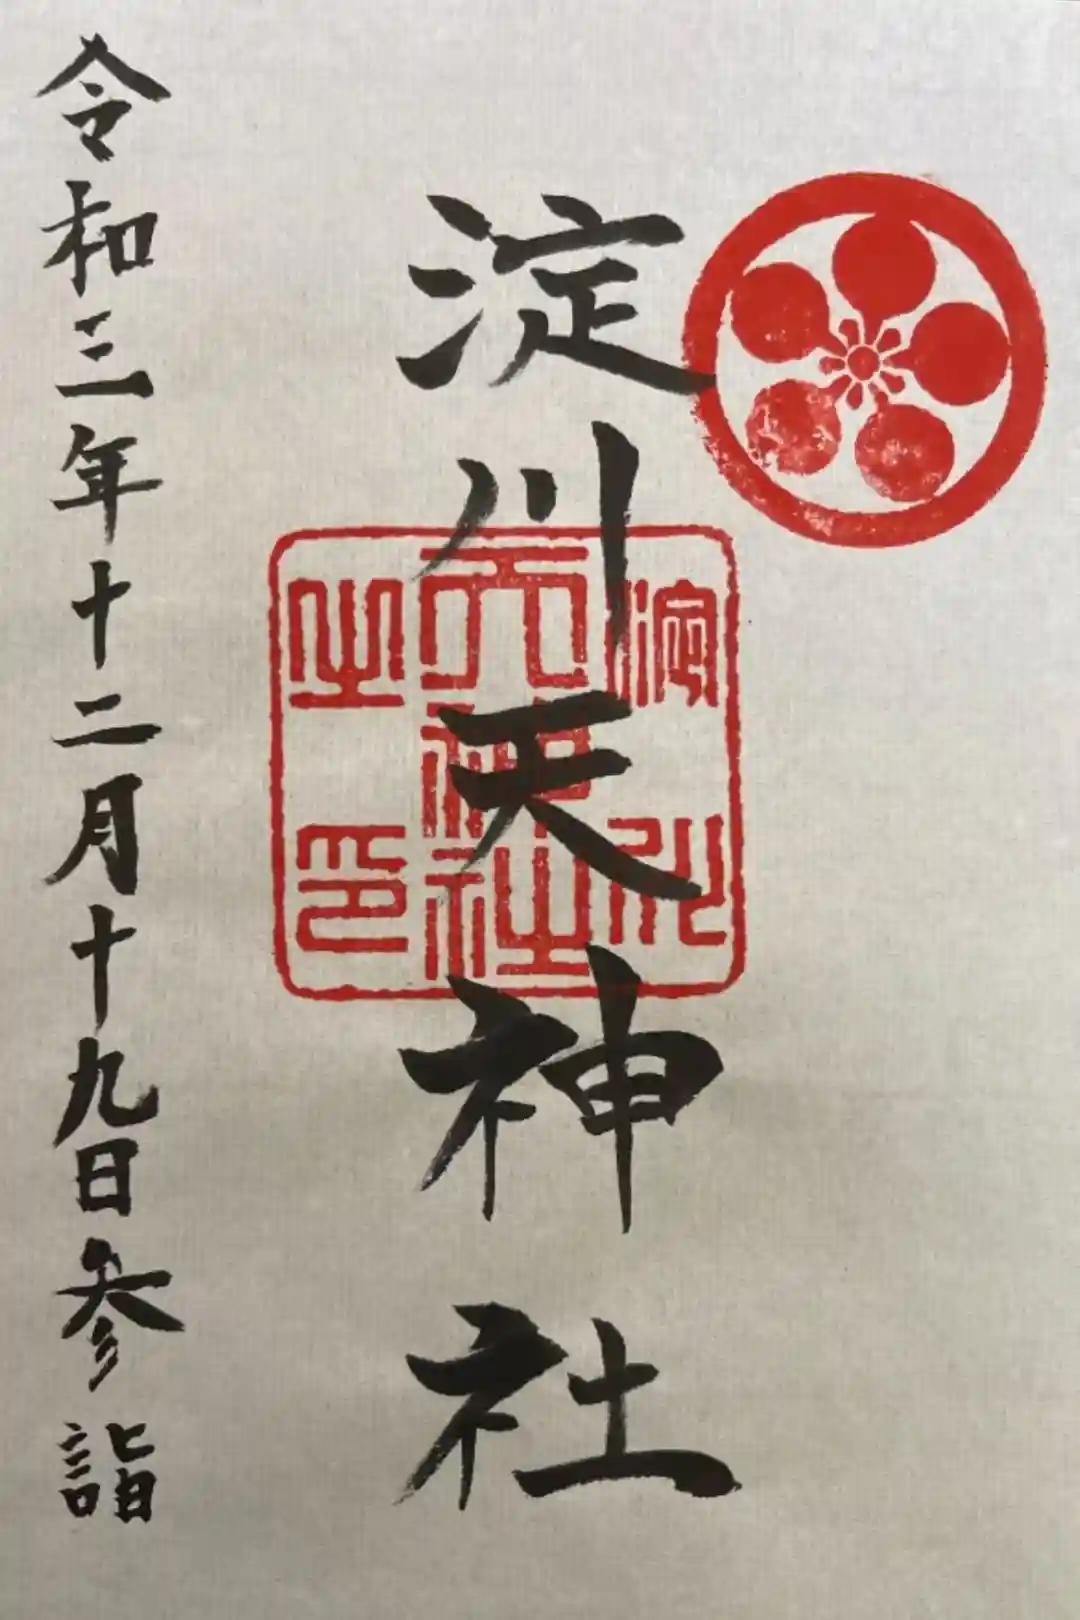 淀川天神社
淀川
天神社
之印
令和三年十二月十九日参詣